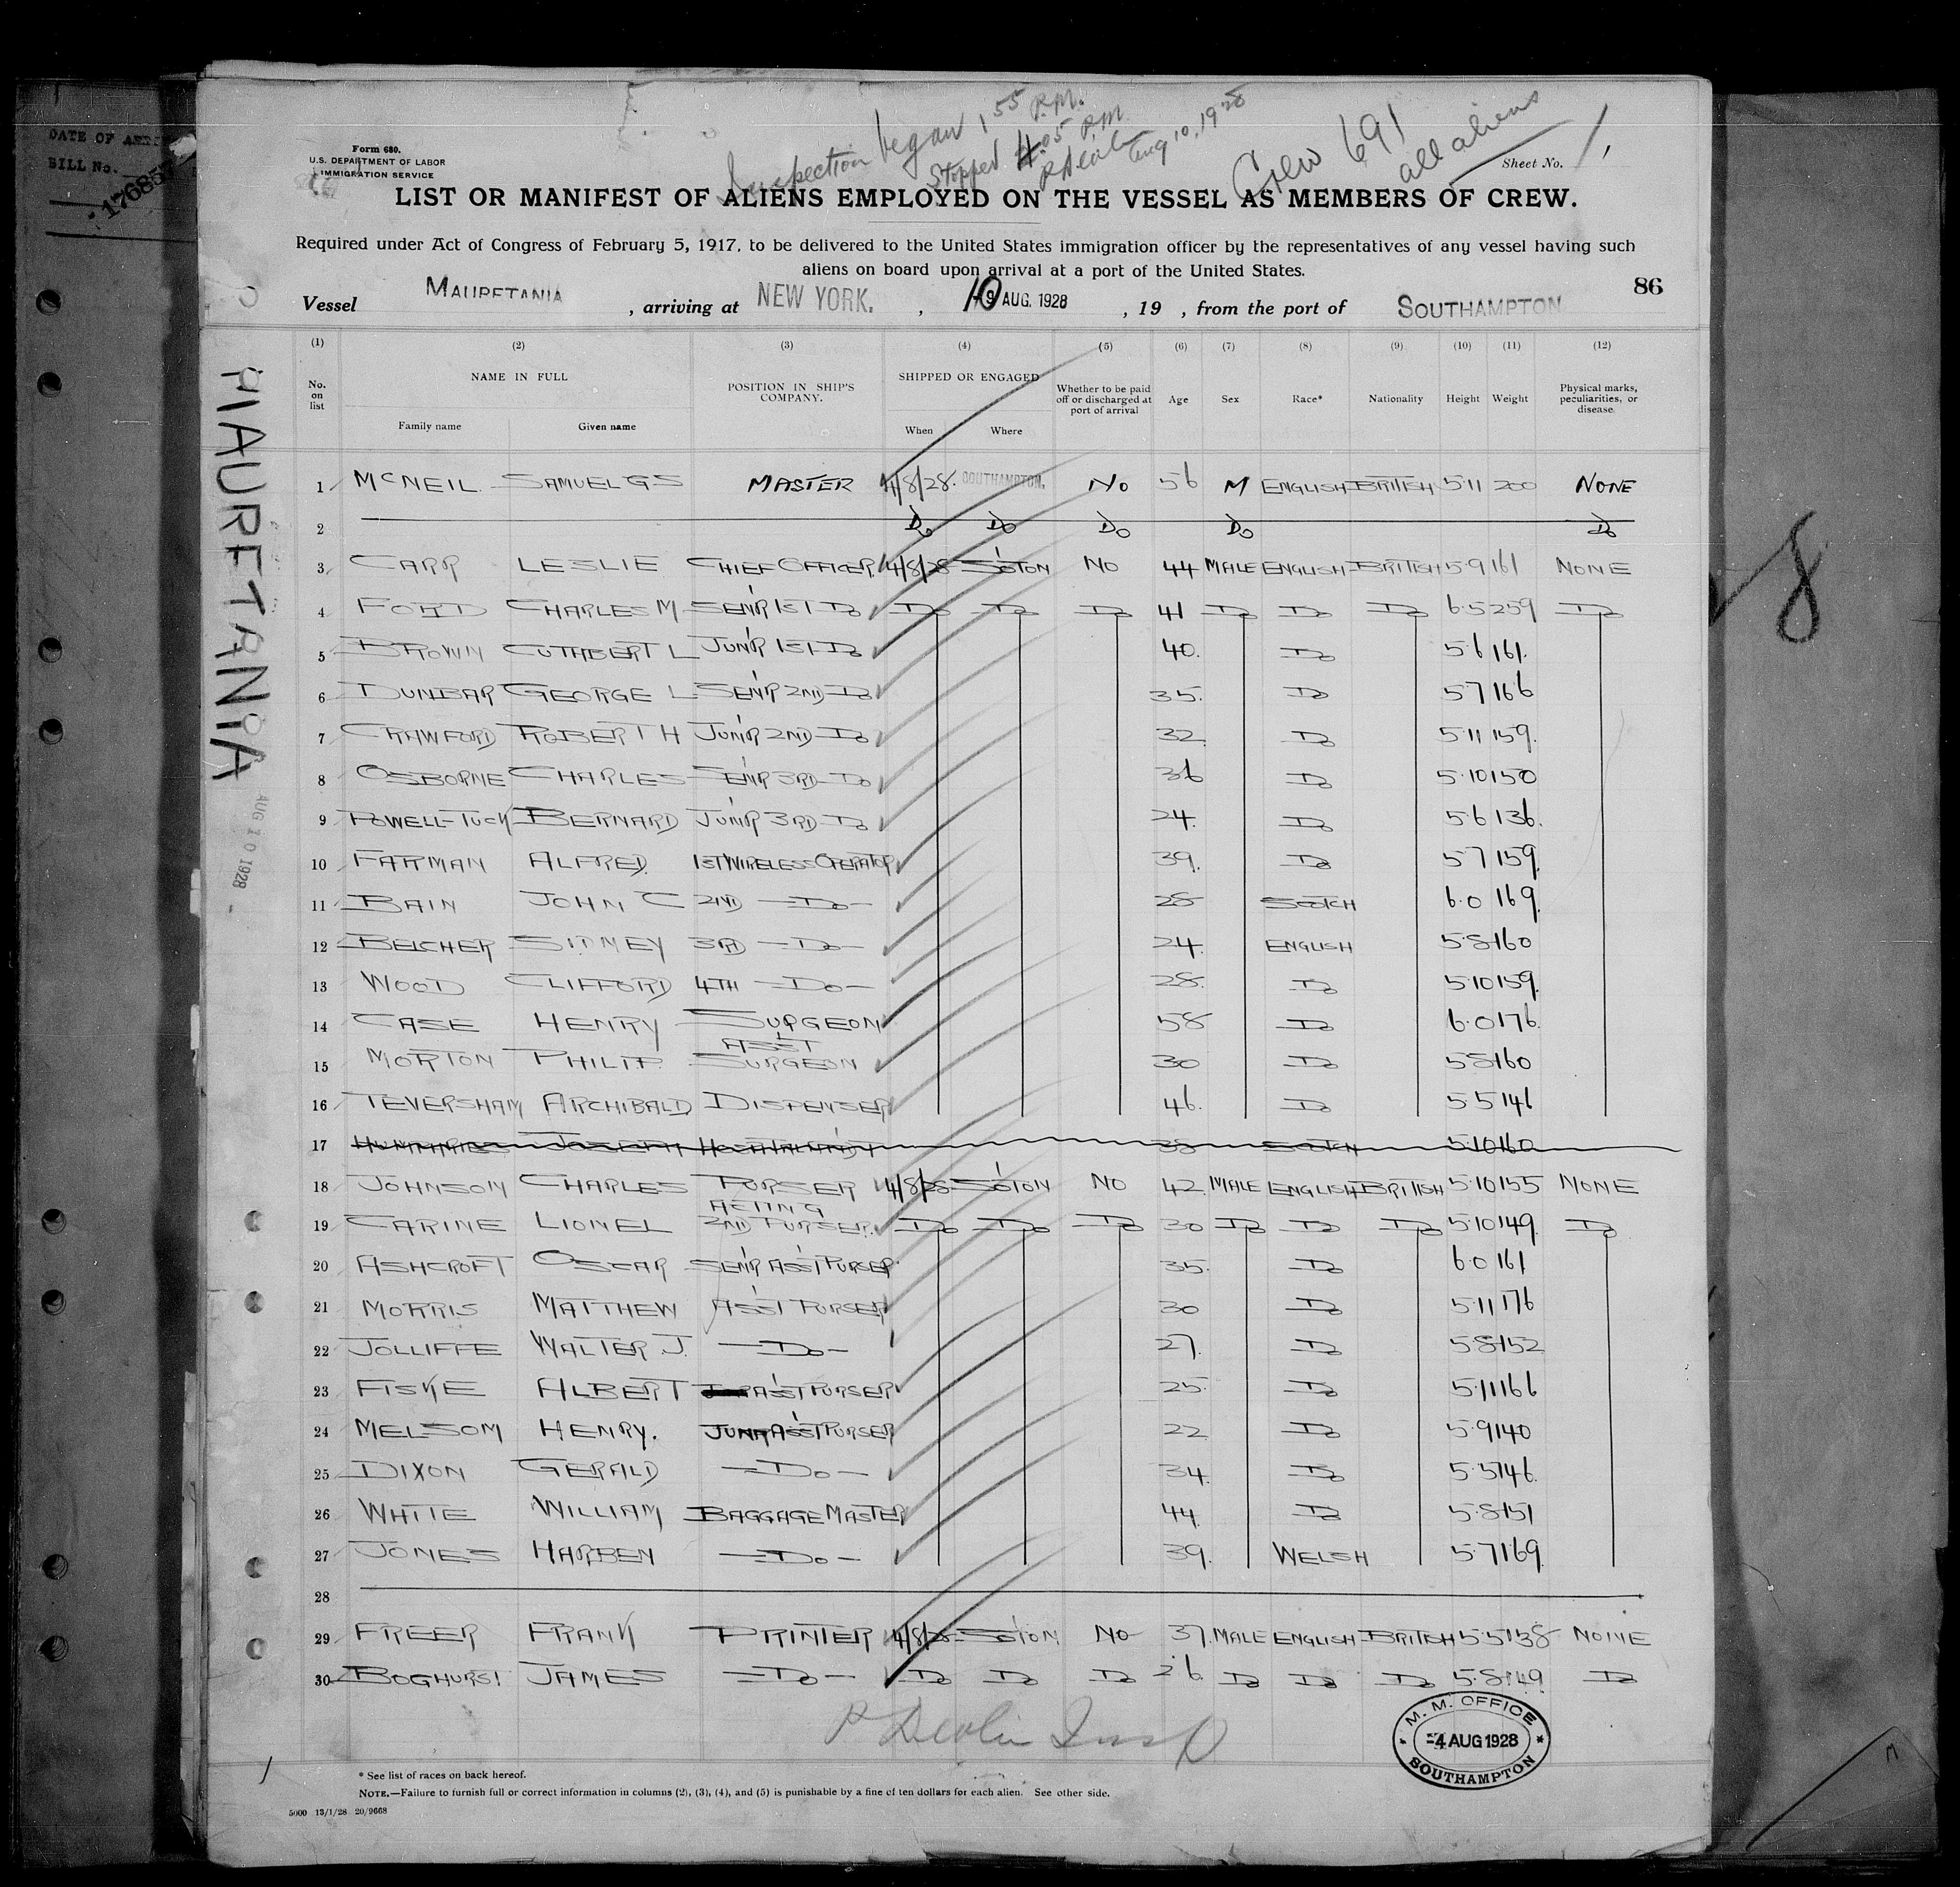 DATE OF
BILL No.
17685
Inspection began 1 55 P.M.
Stopped 4.05 P.M.
Aug 10, 1928
Crew 691
all aliens
Form 680.
U.S. DEPARTMENT OF LABOR
IMMIGRATION SERVICE
Sheet No. 1
LIST OR MANIFEST OF ALIENS EMPLOYED ON THE VESSEL AS MEMBERS OF CREW.
Required under Act of Congress of February 5, 1917, to be delivered to the United States immigration officer by the representatives of any vessel having such
aliens on board upon arrival at a port of the United States.
86
Vessel MAURETANIA, arriving at NEW YORK., 10 AUG. 1928, 19 , from the port of SOUTHAMPTON
(1) (2) (3) (4) (5) (6) (7) (8) (9) (10) (11) (12)
No. on list NAME IN FULL Family name Given name POSITION IN SHIP'S COMPANY. SHIPPED OR ENGAGED When Where Whether to be paid off or discharged at port of arrival Age Sex Race* Nationality Height Weight Physical marks, peculiarities, or disease.
1 MCNEIL SAMUEL G S MASTER 4/8/28. SOUTHAMPTON. NO 56 M ENGLISH BRITISH 5.11 200 NONE
2 Do Do Do Do Do
3 CARR LESLIE CHIEF OFFICER 4/8/28 S'OTON NO 44 MALE ENGLISH BRITISH 5.9 161 NONE
4 FORD CHARLES M SEN'R 1ST Do Do Do Do 41 Do Do Do 6.5 259 Do
5 BROWN CUTHBERT L JUN'R 1ST Do 40. Do 5.6 161.
6 DUNBAR GEORGE L SEN'R 2ND Do 35. Do 5.7 166
7 CRAWFORD ROBERT H JUN'R 2ND Do 32 Do 5.11 159.
8 OSBORNE CHARLES SEN'R 3RD Do 36 Do 5.10 150
9 POWELL-TUCK BERNARD JUN'R 3RD Do 24. Do 5.6 136.
10 FARMAN ALFRED. 1ST WIRELESS OPERATOR 39. Do 5.7 159.
11 BAIN JOHN C 2ND —Do— 28 SCOTCH 6.0 169.
12 BELCHER SIDNEY 3RD —Do— 24. ENGLISH 5.8 160
13 WOOD CLIFFORD 4TH —Do— 28. Do 5.10 159.
14 CASE HENRY SURGEON 58 Do 6.0 176.
15 MORTON PHILIP. ASST SURGEON 30 Do 5.8 160
16 TEVERSHAM ARCHIBALD DISPENSER 46. Do 5.5 146
17 JOSEPH 38 SCOTCH 5.10 160
18 JOHNSON CHARLES PURSER 4/8/28 S'OTON NO 42. MALE ENGLISH BRITISH 5.10 155 NONE
19 CARINE LIONEL ACTING 2ND PURSER. Do Do Do 30 Do Do Do 5.10 149. Do
20 ASHCROFT OSCAR SEN'R ASS'T PURSER 35. Do 6.0 161
21 MORRIS MATTHEW ASS'T PURSER 30 Do 5.11 176
22 JOLLIFFE WALTER J. —Do— 27. Do 5.8 152
23 FISKE ALBERT ASS'T PURSER 25. Do 5.11 166
24 MELSOM HENRY. JUNR ASS'T PURSER 22 Do 5.9 140
25 DIXON GERALD —Do— 34. Do 5.5 146.
26 WHITE WILLIAM BAGGAGE MASTER 44. Do 5.8 151
27 JONES HARBEN —Do— 39. WELSH 5.7 169.
28
29 FREER FRANK PRINTER 4/8/28 S'OTON NO 37. MALE ENGLISH BRITISH 5.5 138 NONE
30 BOGHURST JAMES —Do— Do Do Do 26 Do Do Do 5.8 149 Do
P Devlin Insp
M. M. OFFICE
-4 AUG 1928
SOUTHAMPTON
* See list of races on back hereof.
NOTE.—Failure to furnish full or correct information in columns (2), (3), (4), and (5) is punishable by a fine of ten dollars for each alien. See other side.
5000 13/1/28 20/9668
MAURETANIA
AUG 10 1928
8